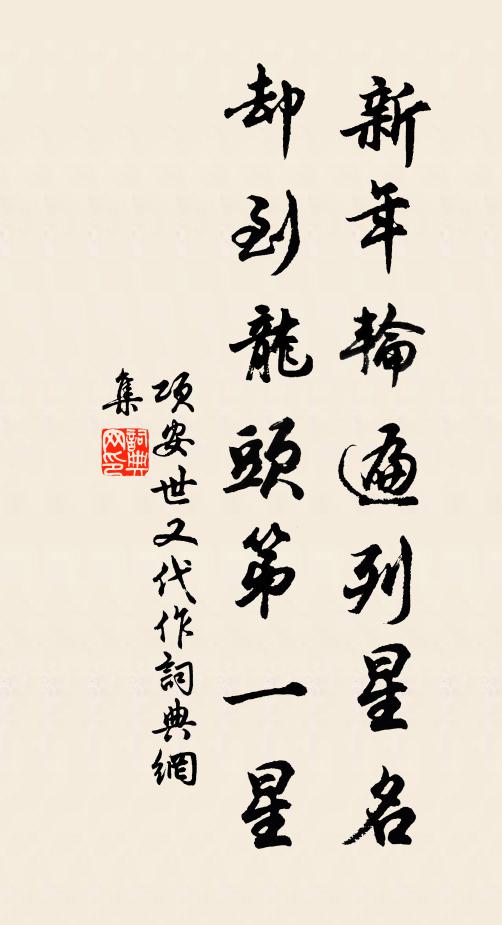 新年輪遍列星名
却到龍頭第一星
項安世又代作詞典網
集
詞典网印